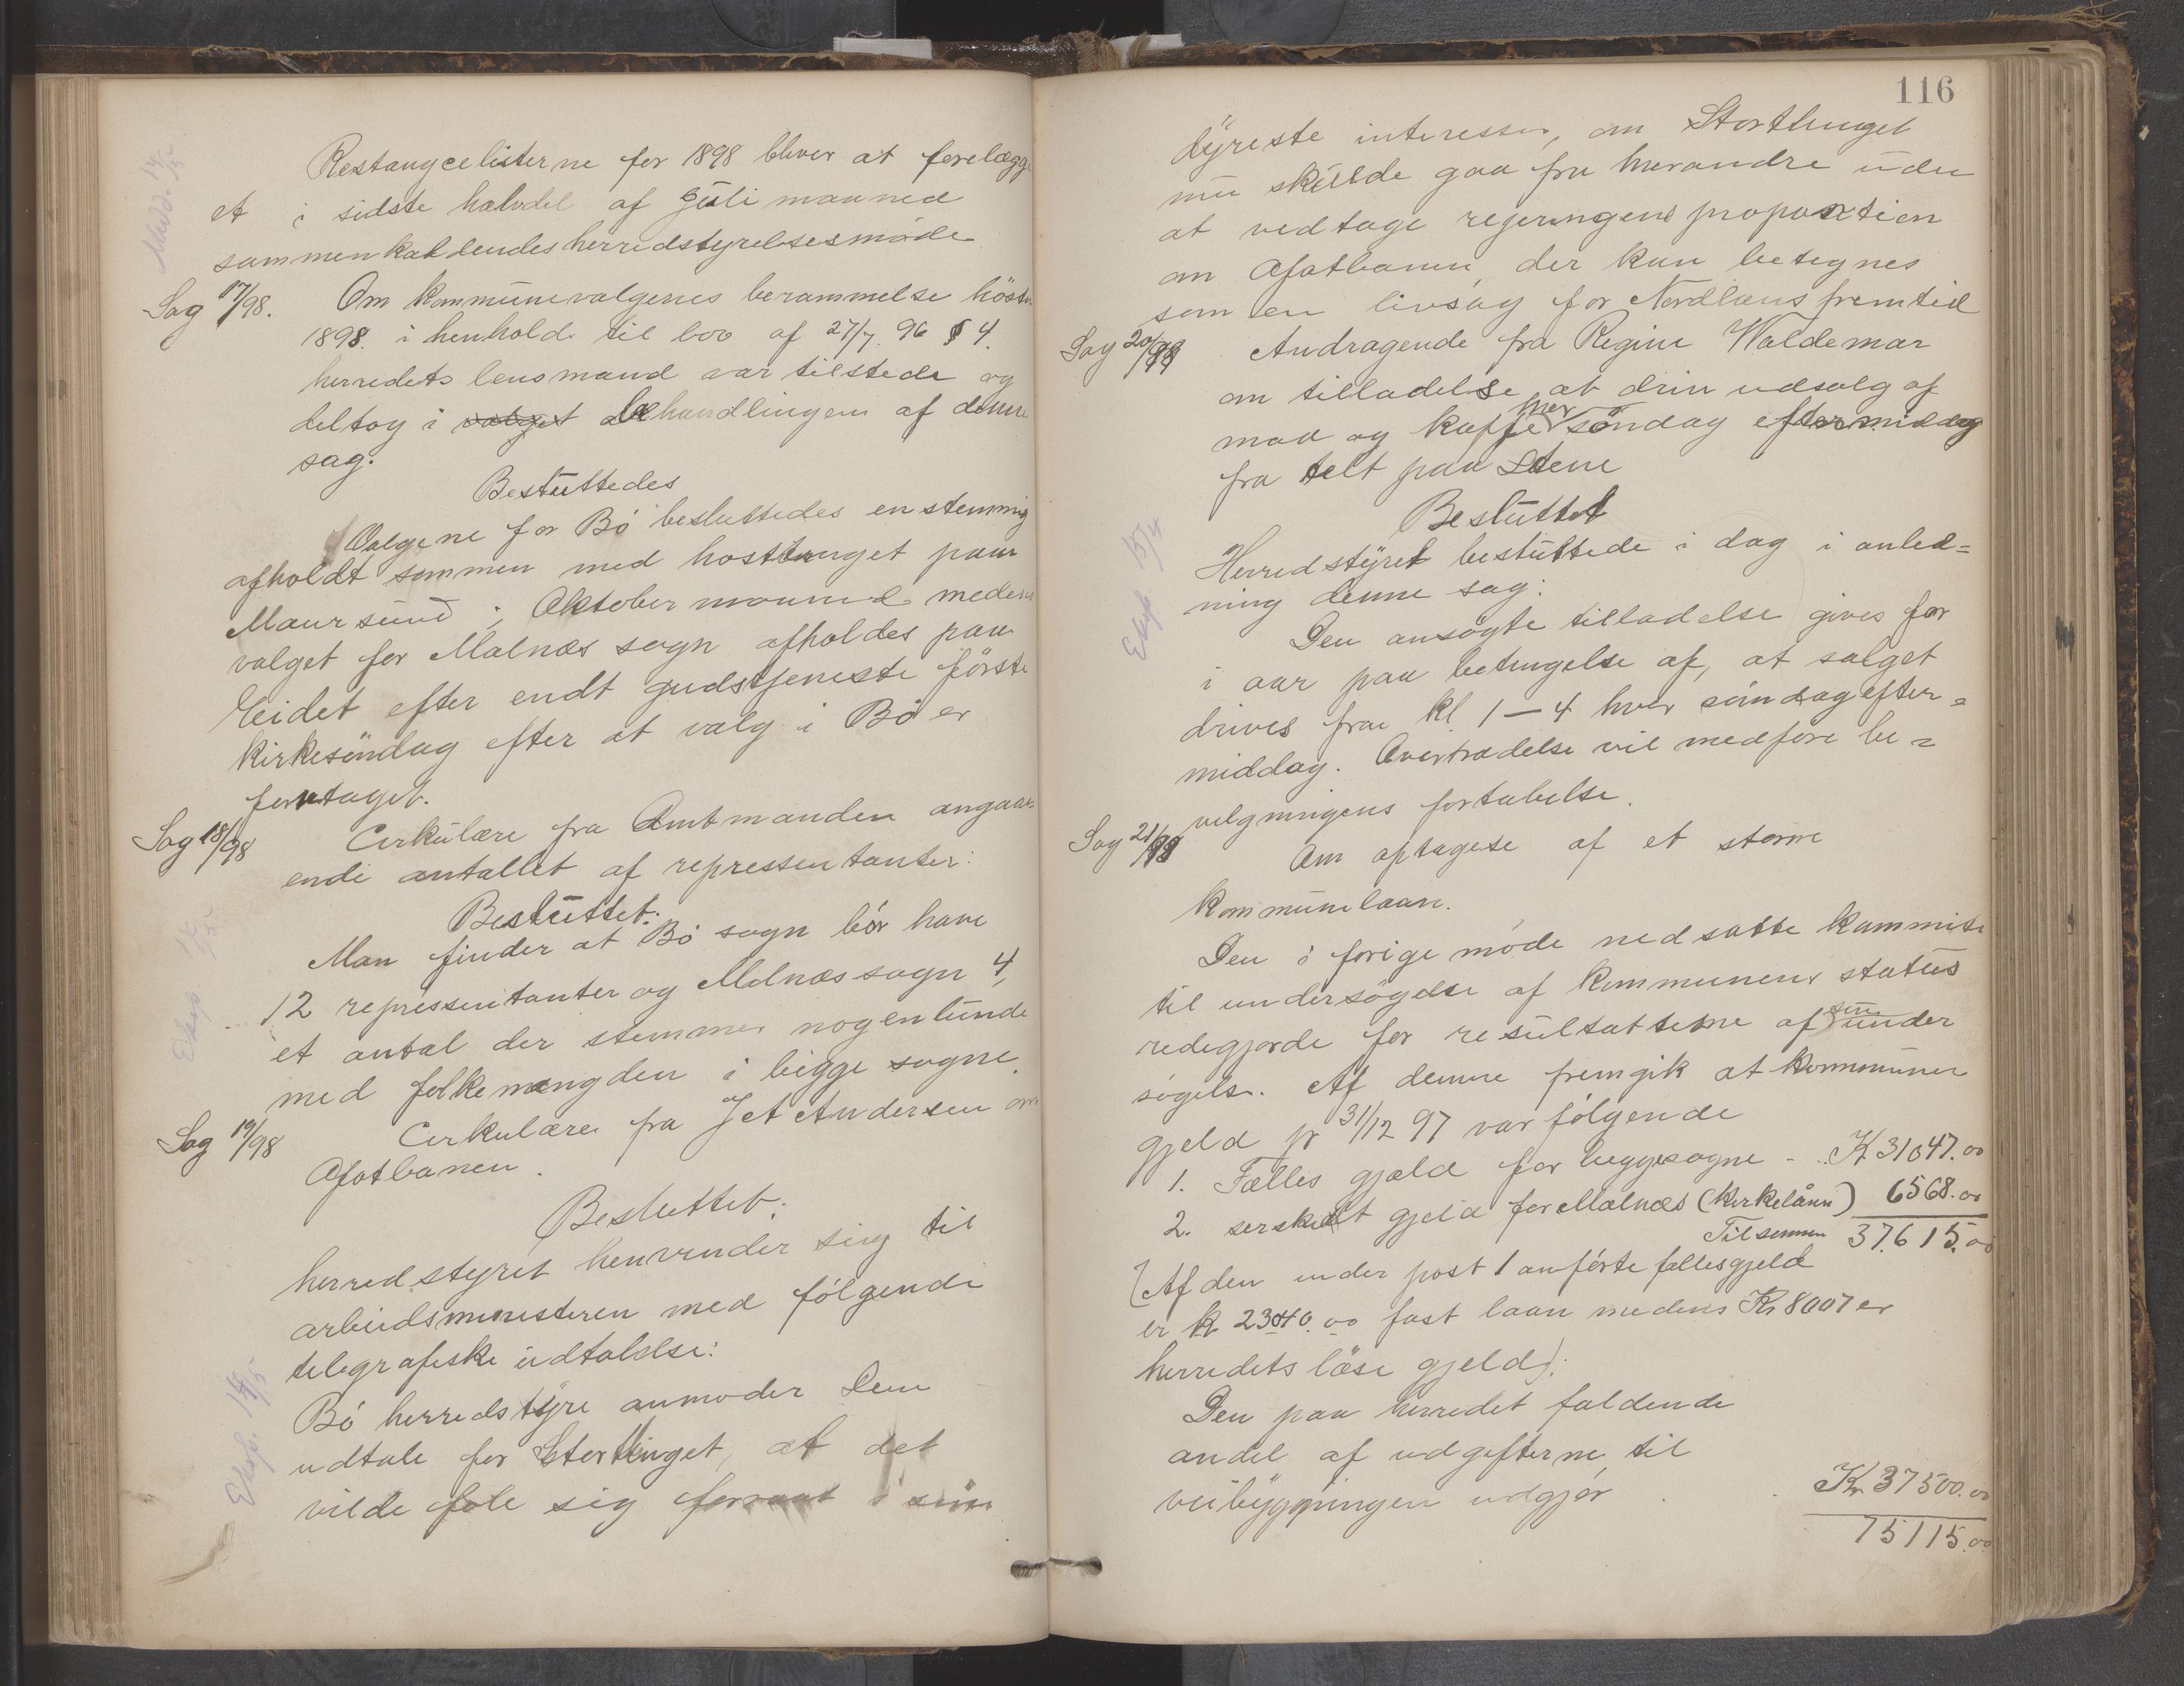 Restancelisterne for 1898 bliver at forelægg
et i sidste halvdel af Juli maaned
sammenkallendes herredstyrelsesmøde
Sag 17/98. Om kommunevalgenes berammelse høsten
1898 i henhold til lov af 27/7 96 § 4.
herredets lensmand var tilstede og
deltog i valget behandlingen af denne
sag.
Besluttedes
Valgene for Bø besluttedes enstemmig
afholdt sammen med høstthinget paa
Maursund i Oktober maaned medens
valget for Malnæs sogn afholdes paa
Eidet efter endt gudstjeneste første
kirkesøndag efter at valg i Bø er
foretaget.
Sag 18/98 Cirkulære fra Amtmanden angaa-
ende antallet af repressentanter:
Besluttet:
Man finder at Bø sogn bør have
12 repressentanter og Malnæs sogn 4,
et antal der stemmer nogenlunde
med folkemængden i begge sogne.
Sag 19/98 Cirkulære fra Jet Andersen om
Ofotbanen.
Besluttet:
herredstyret henvender sig til
arbeidsministeren med følgende
telegrafiske udtalelse:
Bø herredstyre anmoder Dem
udtale for Storthinget, at det
vilde føle sig forraat i sine
Medd. 14/5
Eksp. 14/5
Eksp. 14/5
116
dyreste interesser, om Storthinget
nu skulde gaa fra hverandre uden
at vedtage regjeringens proposition
om Ofotbanen, der kan betegnes
som en livsag for Nordlans fremtid
Sag 20/98 Andragende fra Regine Waldemar
om tilladelse at drive udsalg af
mad og kaffe hver søndag eftermiddag
fra telt paa Steine
Besluttet
Herredstyret besluttede i dag i anled=
ning denne sag:
Den ansøgte tilladelse gives for
i aar paa betingelse af, at salget
drives fra kl 1–4 hver søndag efter=
middag. Overtrædelse vil medføre be=
vilgningens fortabelse.
Sag 21/98 Om optagelse af et større
kommunelaan.
Den i forige møde nedsatte kommite
til undersøgelse af kommunens status
redegjorde for resultatterne af sin under
søgelse. Af denne fremgik at kommunens
gjeld pr 31/12 97 var følgende
1. Fælles gjæld for begge sogne - . K 31047.00
2. serskilt gjeld for Malnæs (kirkelån) 6568.00
Tilsammen 37.615.00
(Af den under post 1 anførte fællesgjeld
er k 23040.00 fast laan medens Kr 8007 er
herredets løse gjeld).
Den paa herredet faldende
andel af udgifterne til
veibygningen udgjør . . Kr 37500.00
75115.00
Eksp. 15/4